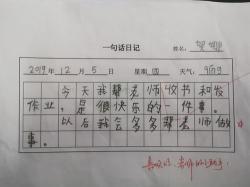 一句话日记
姓名:
2019年12月5日 星期四 天气:
今天我帮老师收书和发
作业,是很快乐的一件事。
以后我会多多帮老师做
事。